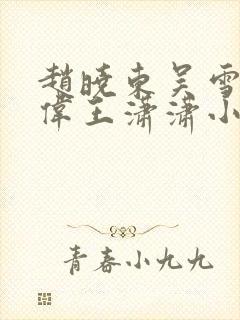 趙曉東吴雪
偉王瀟瀟小
青春小九九